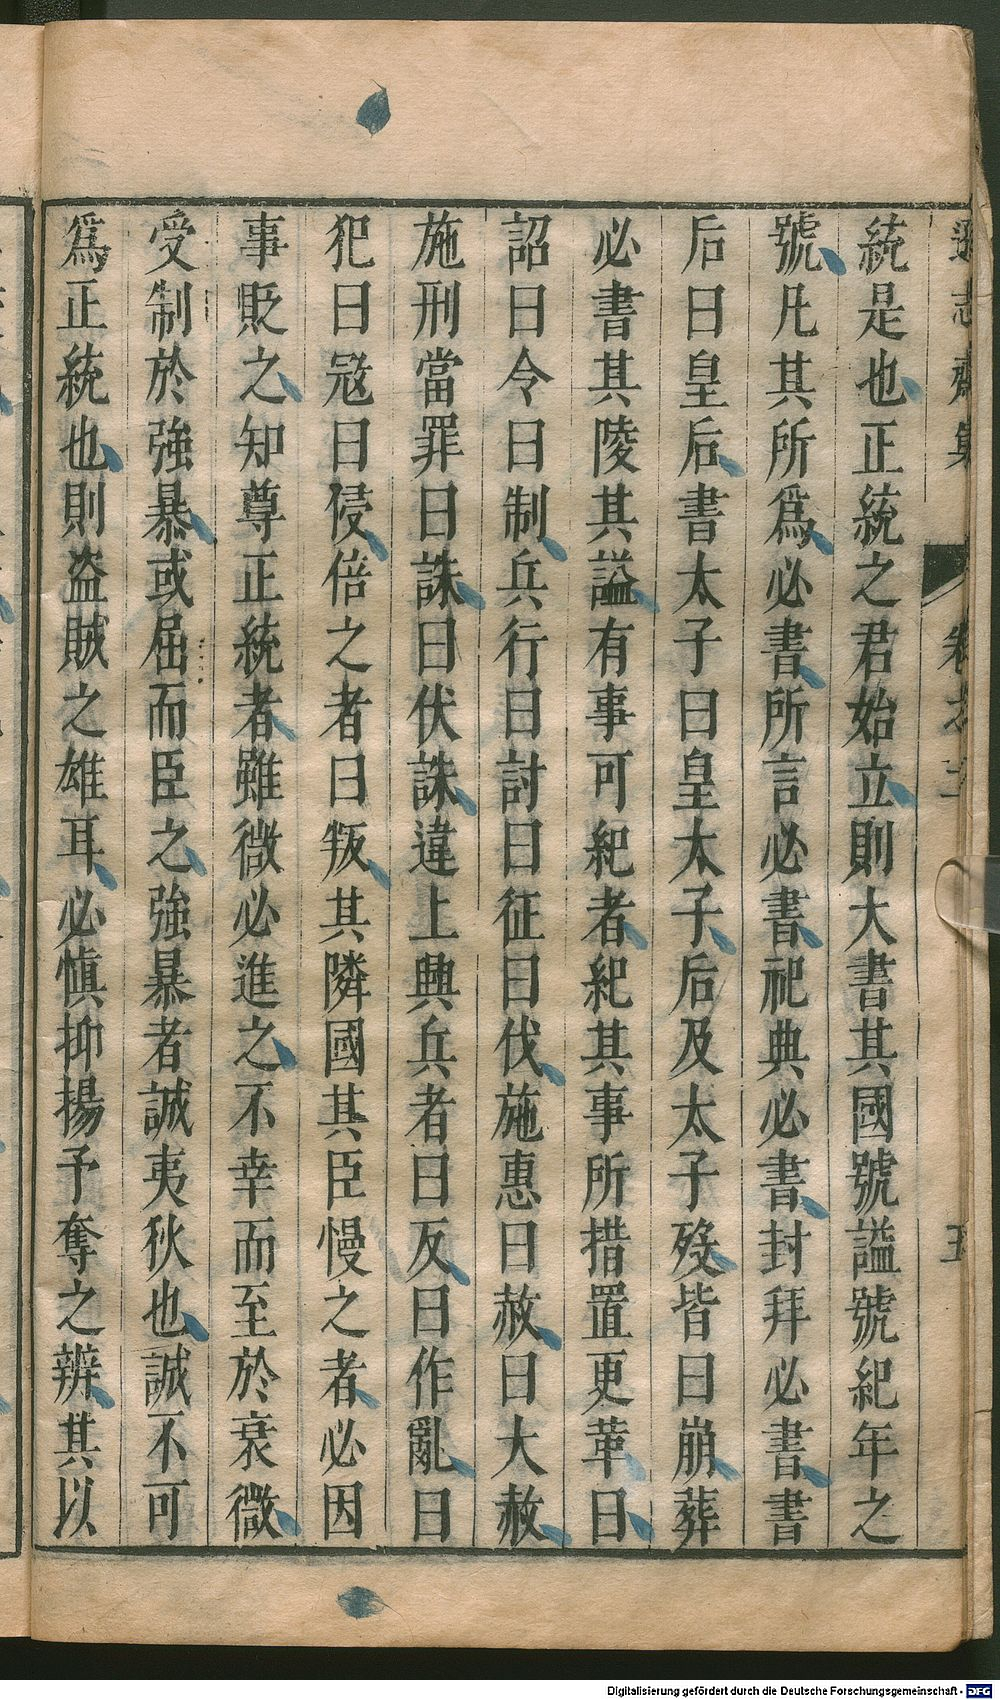 遜志齋集 卷之二 五
統是也正統之君始立則大書其國號謚號紀年之
號凡其所爲必書所言必書祀典必書封拜必書書
后曰皇后書太子曰皇太子后及太子歿皆曰崩葬
必書其陵其謚有事可紀者紀其事所措置更革曰
詔曰令曰制兵行曰討曰征曰伐施惠曰赦曰大赦
施刑當罪曰誅曰伏誅違上興兵者曰反曰作亂曰
犯曰寇曰侵倍之者曰叛其隣國其臣慢之者必因
事貶之知尊正統者雖微必進之不幸而至於衰微
受制於強暴或屈而臣之強暴者誠夷狄也誠不可
爲正統也則盜賊之雄耳必慎抑揚予奪之辨其以
Digitalisierung gefördert durch die Deutsche Forschungsgemeinschaft - DFG